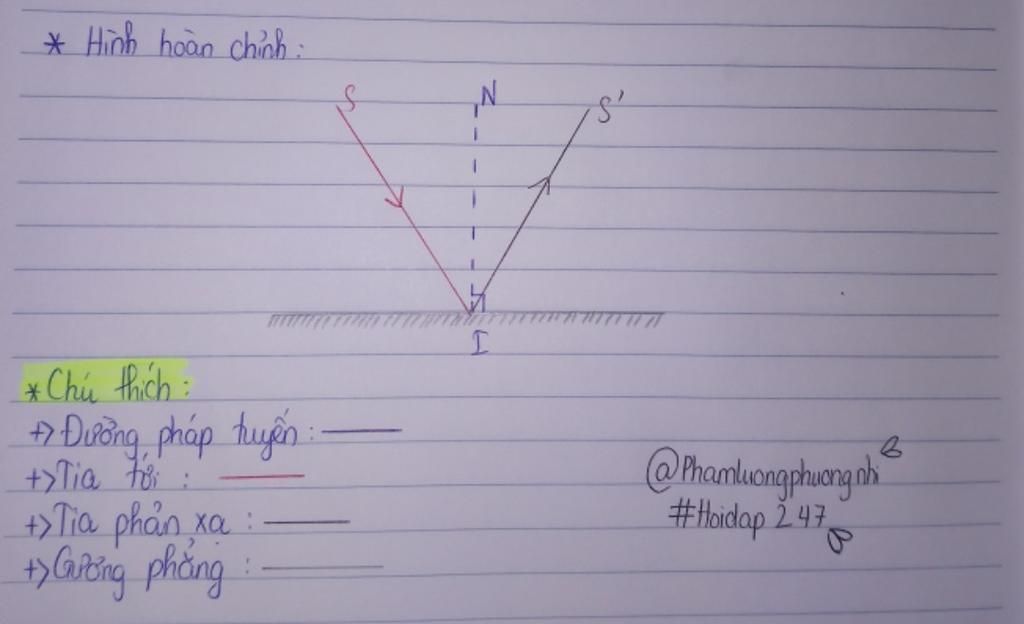 * Hình hoàn chỉnh:
S N S'
I
* Chú thích:
+> Đường pháp tuyến:
+> Tia tới :
+> Tia phản xạ :
+> Gương phẳng :
@Phamluongphuongnhi
#Hoidap 247